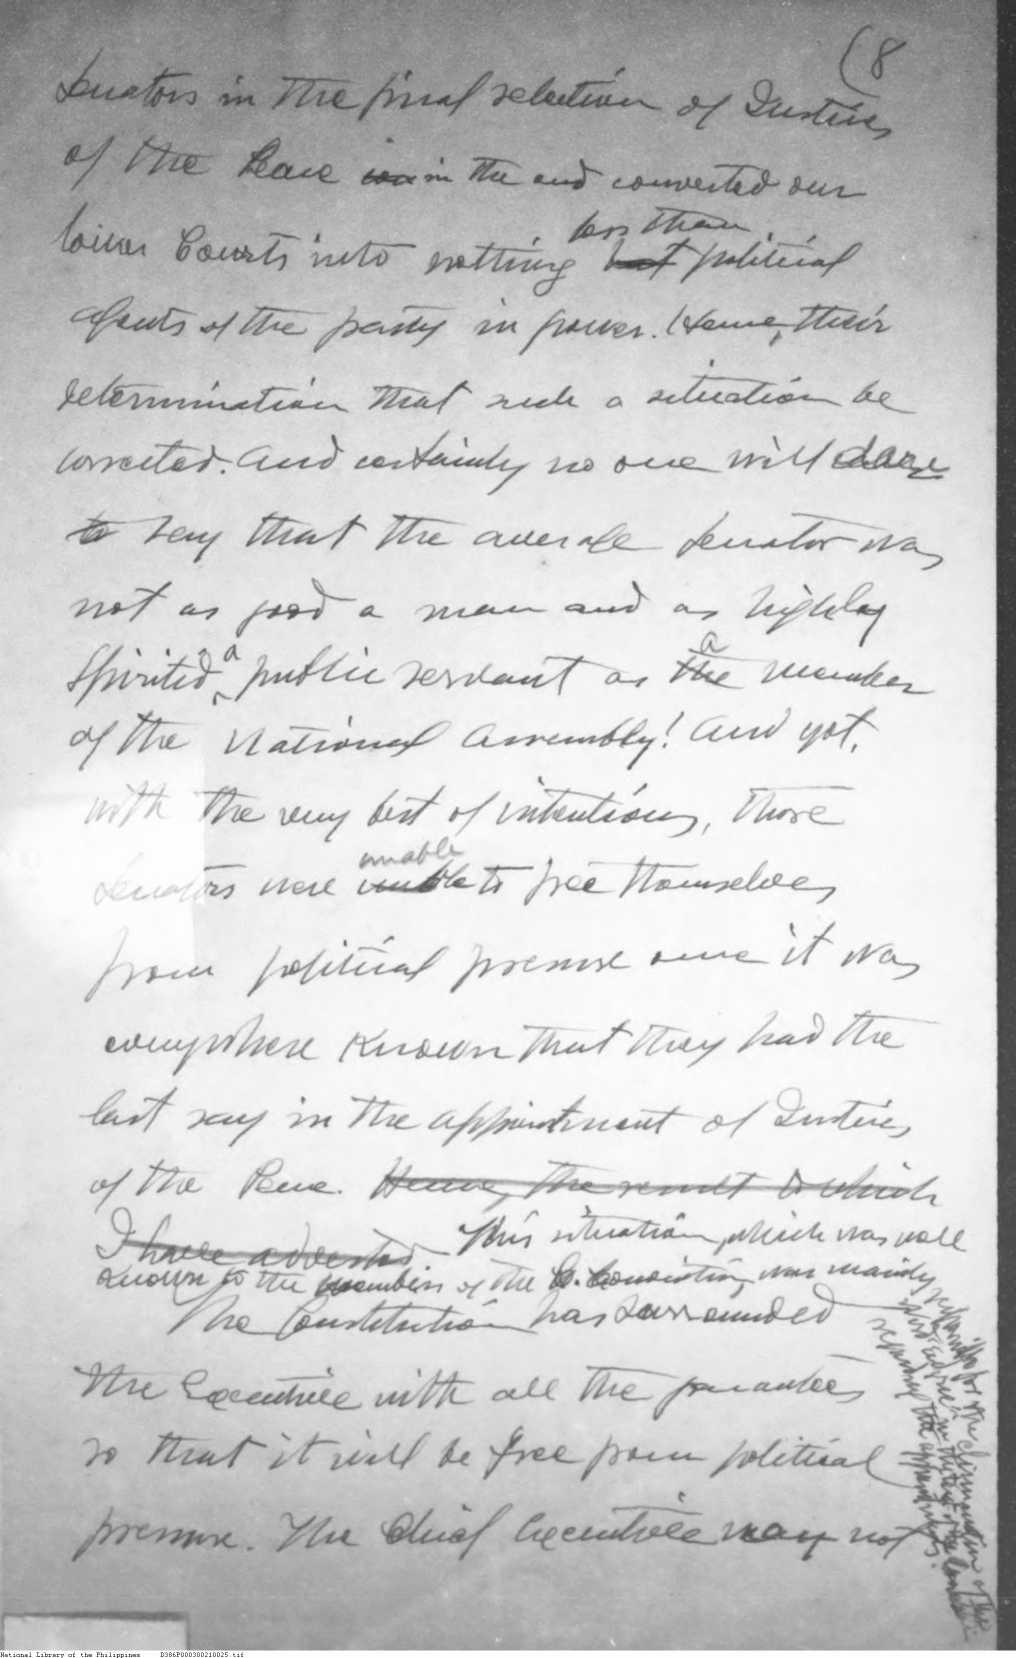 (8
Senators in the final selection of Justices
of the Peace in the end converted our
less than
lower Courts into nothing but political
agents of the party in power. Hence, their
determination that such a situation be
corrected. And certainly no one will dare
to say that the average Senator was
not as good a man and as highly
spirited a public servant as the a member
of the National Assembly! And yet,
with the very best of intentions, those
unable
Senators were unable to free themselves
from political pressure once it was
everywhere known that they had the
last say in the appointment of Justices
of the Peace. Hence, the result to which
I have adverted This situation, which was well
known to the members of the C. Convention, was mainly
responsible for the elimination of the
in the text of the
regarding the appointments.
The Constitution has surrounded
the Executive with all the guarantees
so that it will be free from political
pressure. The Chief Executive may not
National Library of the Philippines D386P000300210025.tif